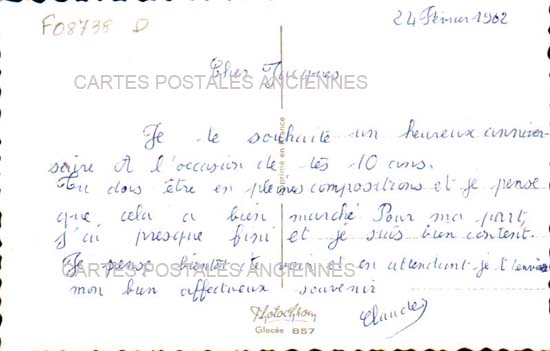 F08738 D
24 Février 1962
Cher Jacques
CARTES POSTALES ANCIENNES
Je te souhaite un heureux anniver-
saire A l'occasion de tes 10 ans.
Tu dois être en pleines compositions et je pense
que cela a bien marché Pour ma part,
j'ai presque fini et je suis bien content.
Je pense bientôt te voir et en attendant je t'envoie
CARTES POSTALES ANCIENNES
mon bien affectueux souvenir
Claude
Imprimé en France
Photochrom
Glacée 857